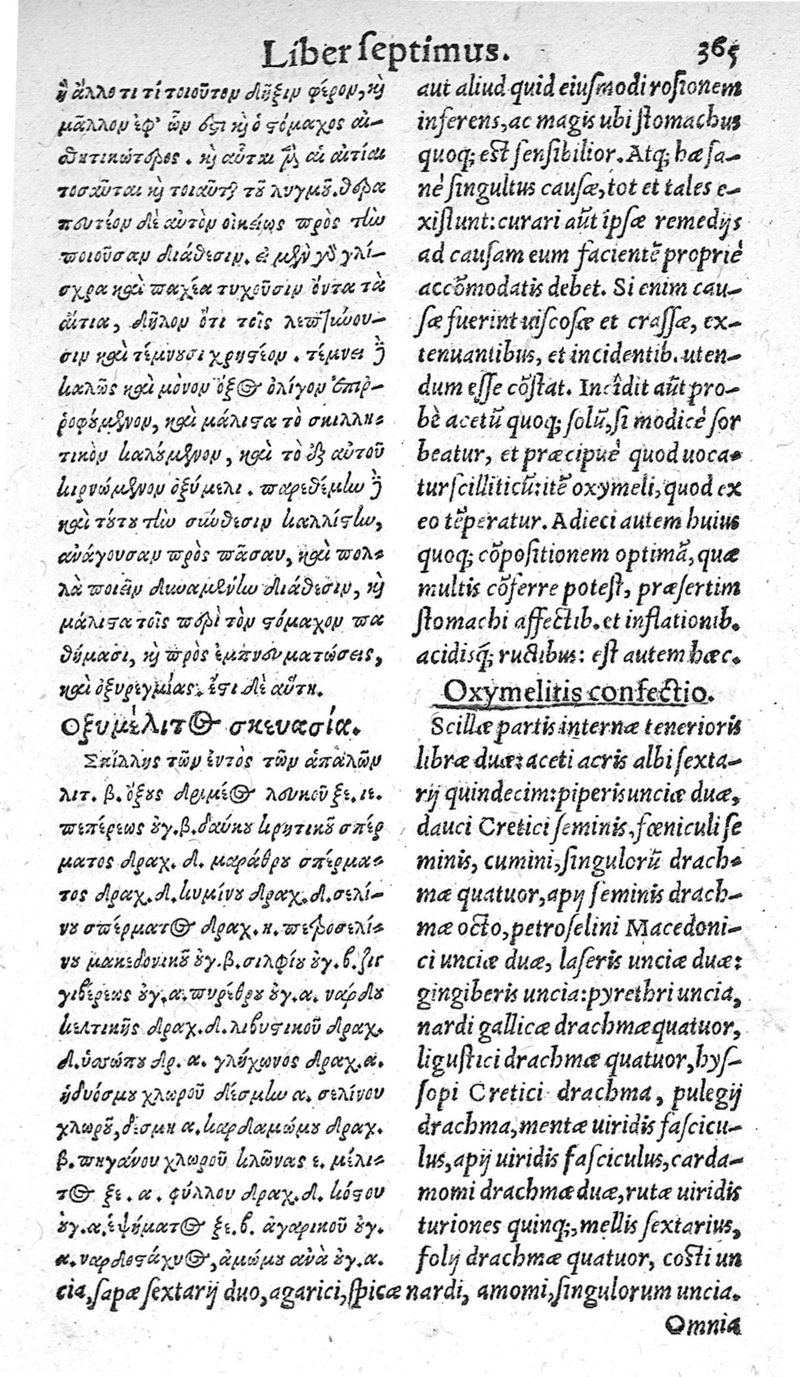 Liber septimus. 365
ἢ ἄλλο τι τί τοιοῦτον δῆξιν φέρον, καὶ
μᾶλλον ἐφ' ὧν ἐστι καὶ ὁ στόμαχος αἰ-
σθητικώτερος. καὶ αὗται μὲν αἱ αἰτίαι
τοσαῦται καὶ τοιαῦται τοῦ λυγμοῦ. θερα
πευτέον δὲ αὐτὸν οἰκείως πρὸς τὴν
ποιοῦσαν διάθεσιν. εἰ μὲν γὰρ γλί-
σχρα καὶ παχέα τυχοῦσιν ὄντα τὰ
αἴτια, δῆλον ὅτι τοῖς λεπτύνου-
σιν καὶ τέμνουσι χρηστέον. τέμνει δὲ
καλῶς καὶ μόνον ὄξος ὀλίγον ἐπιῤ-
ῥοφούμενον, καὶ μάλιστα τὸ σκιλλη-
τικὸν καλούμενον, καὶ τὸ ἐξ αὐτοῦ
κιρνώμενον ὀξύμελι. παρεθέμην δὲ
καὶ τούτου τὴν σύνθεσιν καλλίστην,
ἀνάγουσαν πρὸς πᾶσαν, καὶ πολ-
λὰ ποιεῖν δυναμένην διάθεσιν, καὶ
μάλιστα τοῖς περὶ τὸν στόμαχον πα
θήμασι, καὶ πρὸς ἐμπνευματώσεις,
καὶ ὀξυρεγμίας. ἔστι δὲ αὕτη.
Οξυμέλιτος σκευασία.
Σκίλλης τῶν ἐντὸς τῶν ἁπαλῶν
λιτ. β. ὄξους δριμέος λευκοῦ ξε. ιε.
πεπέρεως ουγ. β. δαύκου κρητικοῦ σπέρ
ματος δραχ. δ. μαράθρου σπέρμα-
τος δραχ. δ. κυμίνου δραχ. δ. σελί-
νου σπέρματος δραχ. η. πετροσελί-
νου μακεδονικοῦ ουγ. β. σιλφίου ουγ. β. ζιγ
γιβέρεως ουγ. α. πυρέθρου ουγ. α. νάρδου
κελτικῆς δραχ. δ. λιβυστικοῦ δραχ.
δ. ὑσσώπου δρ. α. γλήχωνος δραχ. α.
ἡδυόσμου χλωροῦ δέσμην α. σελίνου
χλωροῦ, δέσμη α. καρδαμώμου δραχ.
β. πηγάνου χλωροῦ κλῶνας ε. μέλι-
τος ξε. α. φύλλου δραχ. δ. κόστου
ουγ. α. ἑψήματος ξε. β. ἀγαρικοῦ ουγ.
α. ναρδοστάχυος, ἀμώμου ἀνὰ ουγ. α.
aut aliud quid eiusmodi rosionem
inferens, ac magis ubi stomachus
quoq; est sensibilior. Atq; hæ sa-
nè singultus causæ, tot et tales e-
xistunt: curari aūt ipsæ remedijs
ad causam eum facientē propriè
accōmodatis debet. Si enim cau-
sæ fuerint uiscosæ et crassæ, ex-
tenuantibus, et incidentib. uten-
dum esse cōstat. Incidit aūt pro-
bè acetū quoq; solū, si modicè sor
beatur, et præcipuè quod uoca-
tur scilliticū: itē oxymeli, quod ex
eo tēperatur. Adieci autem huius
quoq; cōpositionem optimā, quæ
multis cōferre potest, præsertim
stomachi affectib. et inflationib.
acidisq́; ructibus: est autem hæc.
Oxymelitis confectio.
Scillæ partis internæ tenerioris
libræ duæ: aceti acris albi sexta-
rij quindecim: piperis unciæ duæ,
dauci Cretici seminis, fœniculi se
minis, cumini, singulorū drach-
mæ quatuor, apij seminis drach-
mæ octo, petroselini Macedoni-
ci unciæ duæ, laseris unciæ duæ:
gingiberis uncia: pyrethri uncia,
nardi gallicæ drachmæ quatuor,
ligustici drachmæ quatuor, hys-
sopi Cretici drachma, pulegij
drachma, mentæ uiridis fascicu-
lus, apij uiridis fasciculus, carda-
momi drachmæ duæ, rutæ uiridis
turiones quinq;, mellis sextarius,
folij drachmæ quatuor, costi un
cia, sapæ sextarij duo, agarici, spicæ nardi, amomi, singulorum uncia.
Omnia